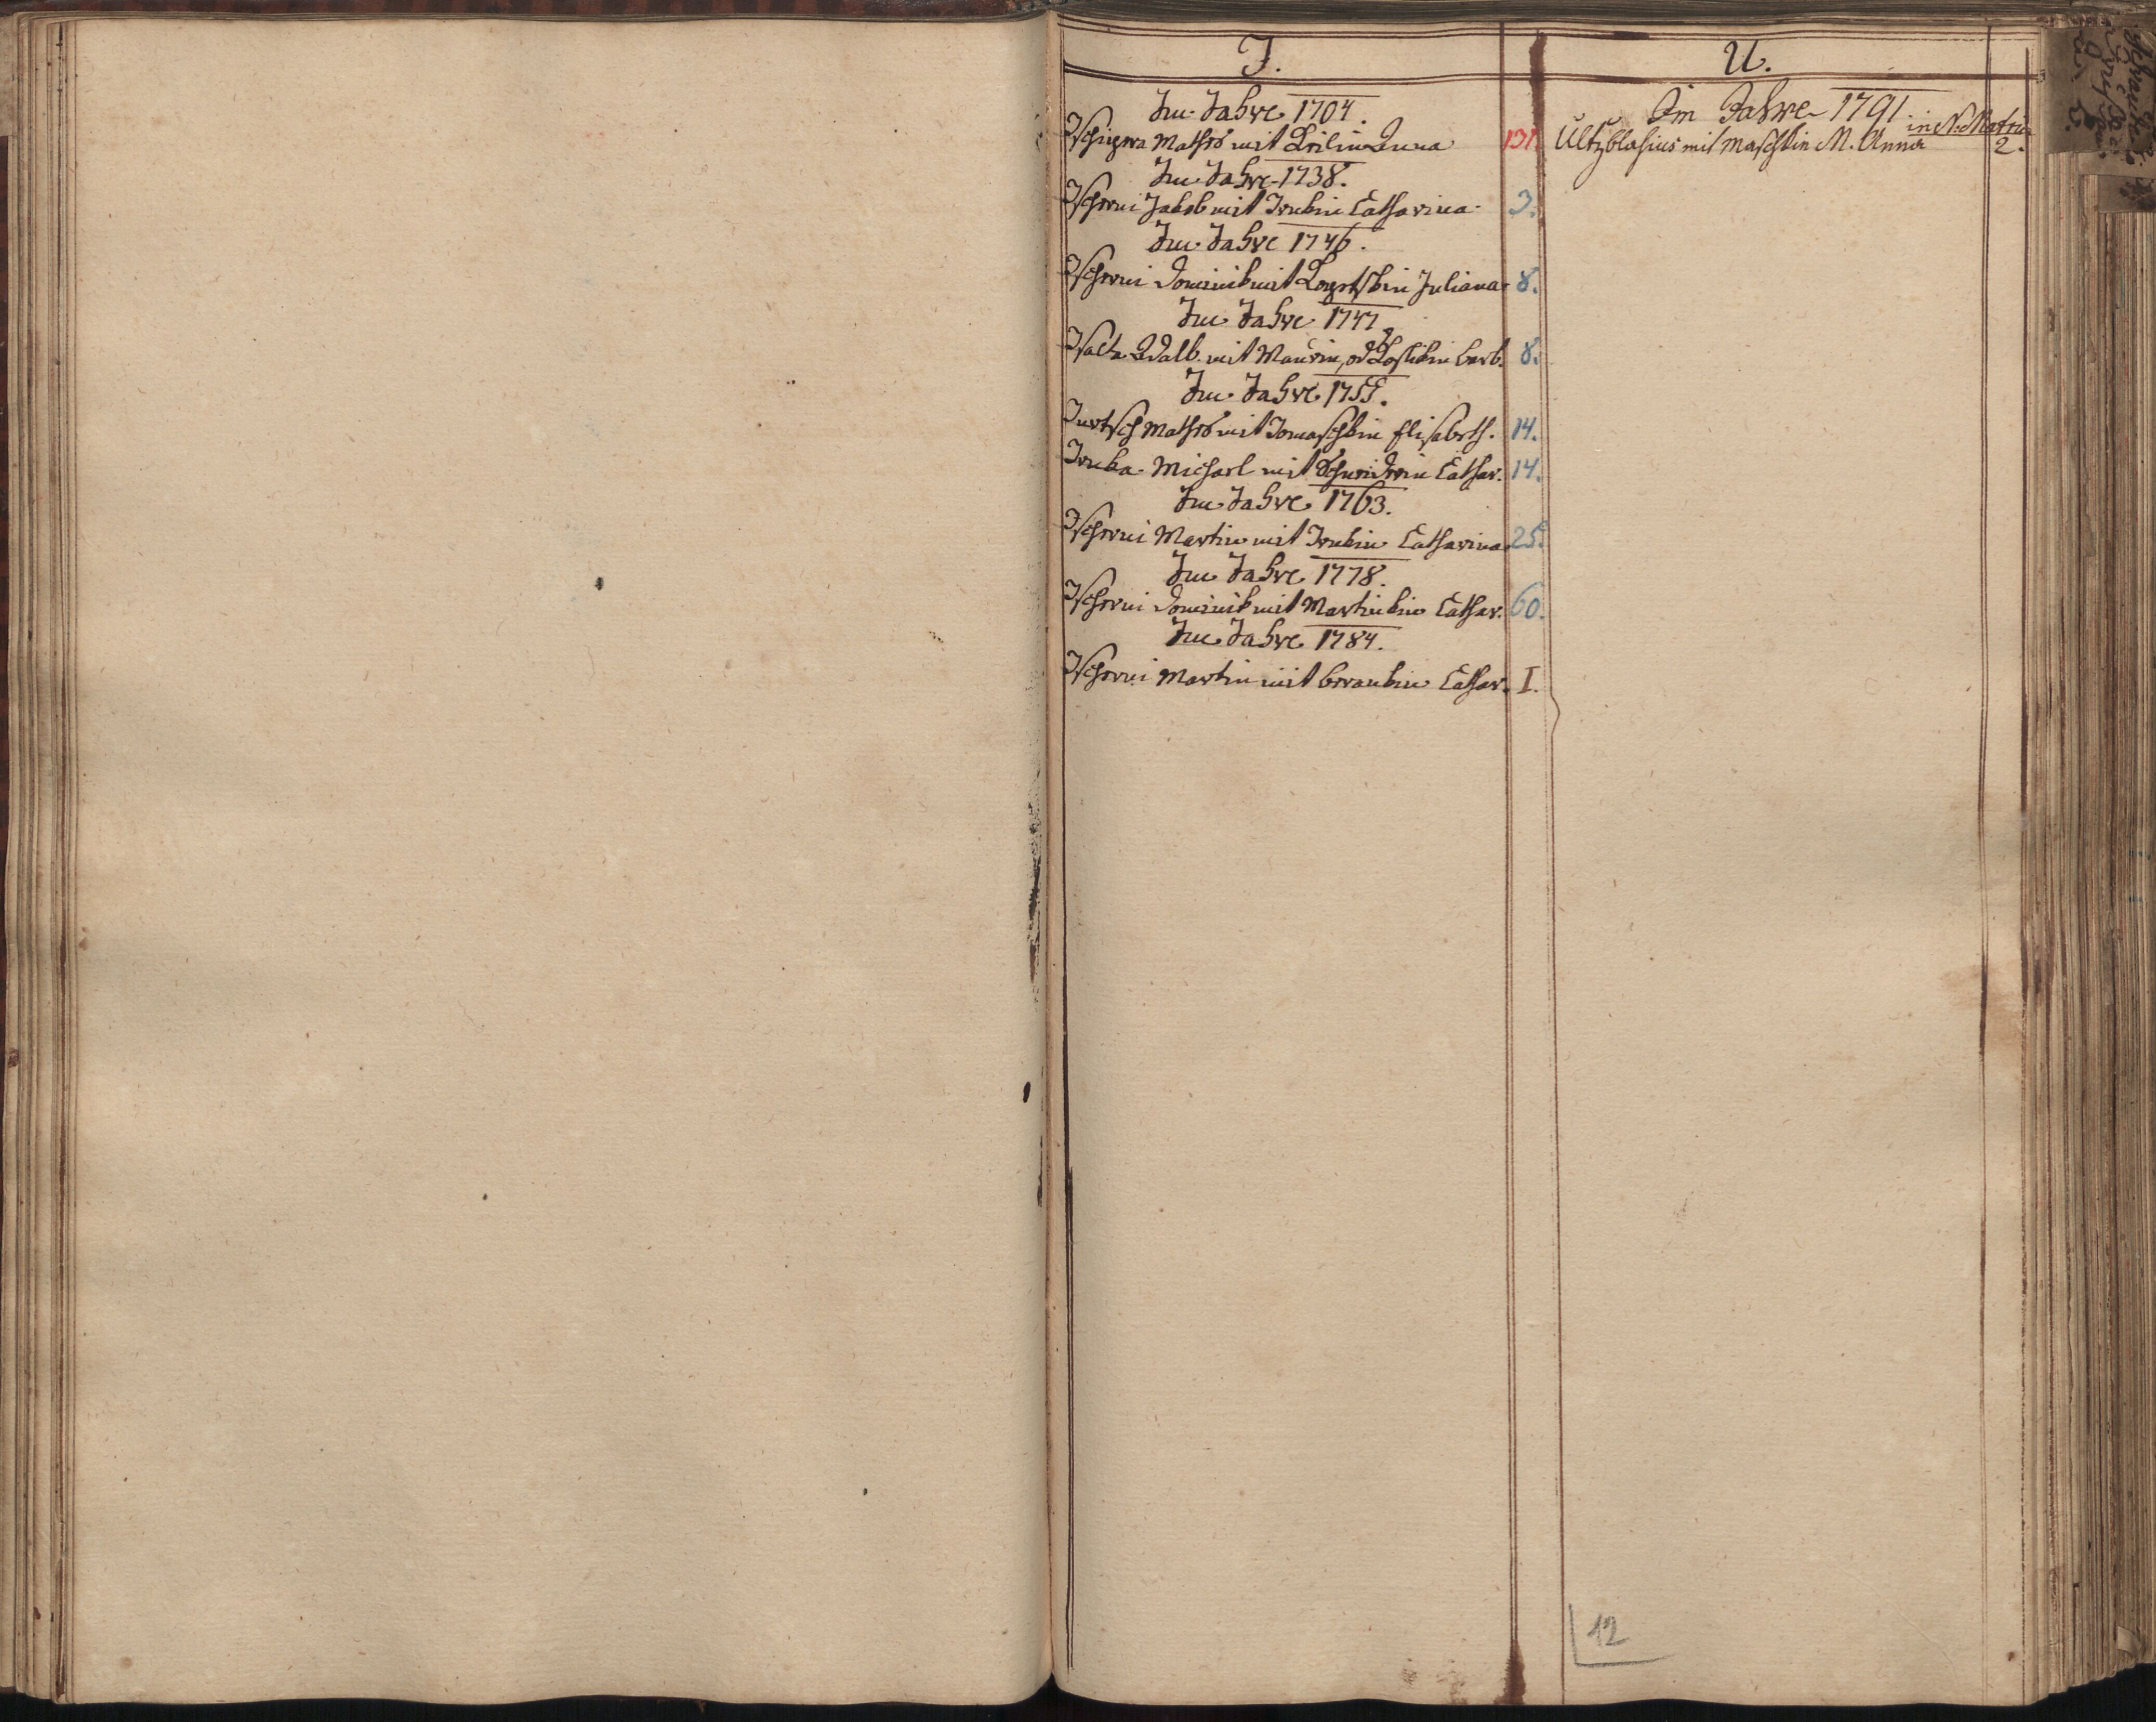 T.
Im Jahre 1704.
Mathes mit Anna 131.
Im Jahre 1738.
Tscherni Jakob mit Trubin Catharina 3.
Im Jahre 1746.
Tscherni Dominik mit Juliana 8.
Im Jahre 1747.
Adalb. mit od. Barb. 8.
Im Jahre 1755.
Turtsch Mathes mit Tomaschkin Elisabeth. 14.
Truba Michael mit Schneidrin Cathar. 14.
Im Jahre 1763.
Tscherni Martin mit Trubin Catharina 25.
Im Jahre 1778.
Tscherni Dominik mit Martinkin Cathar. 60.
Im Jahre 1784.
Tscherni Martin mit Cathar. I.
U.
Im Jahre 1791.
in N. Matric
Ultz Blasius mit Maschkin M. Anna 2.
12